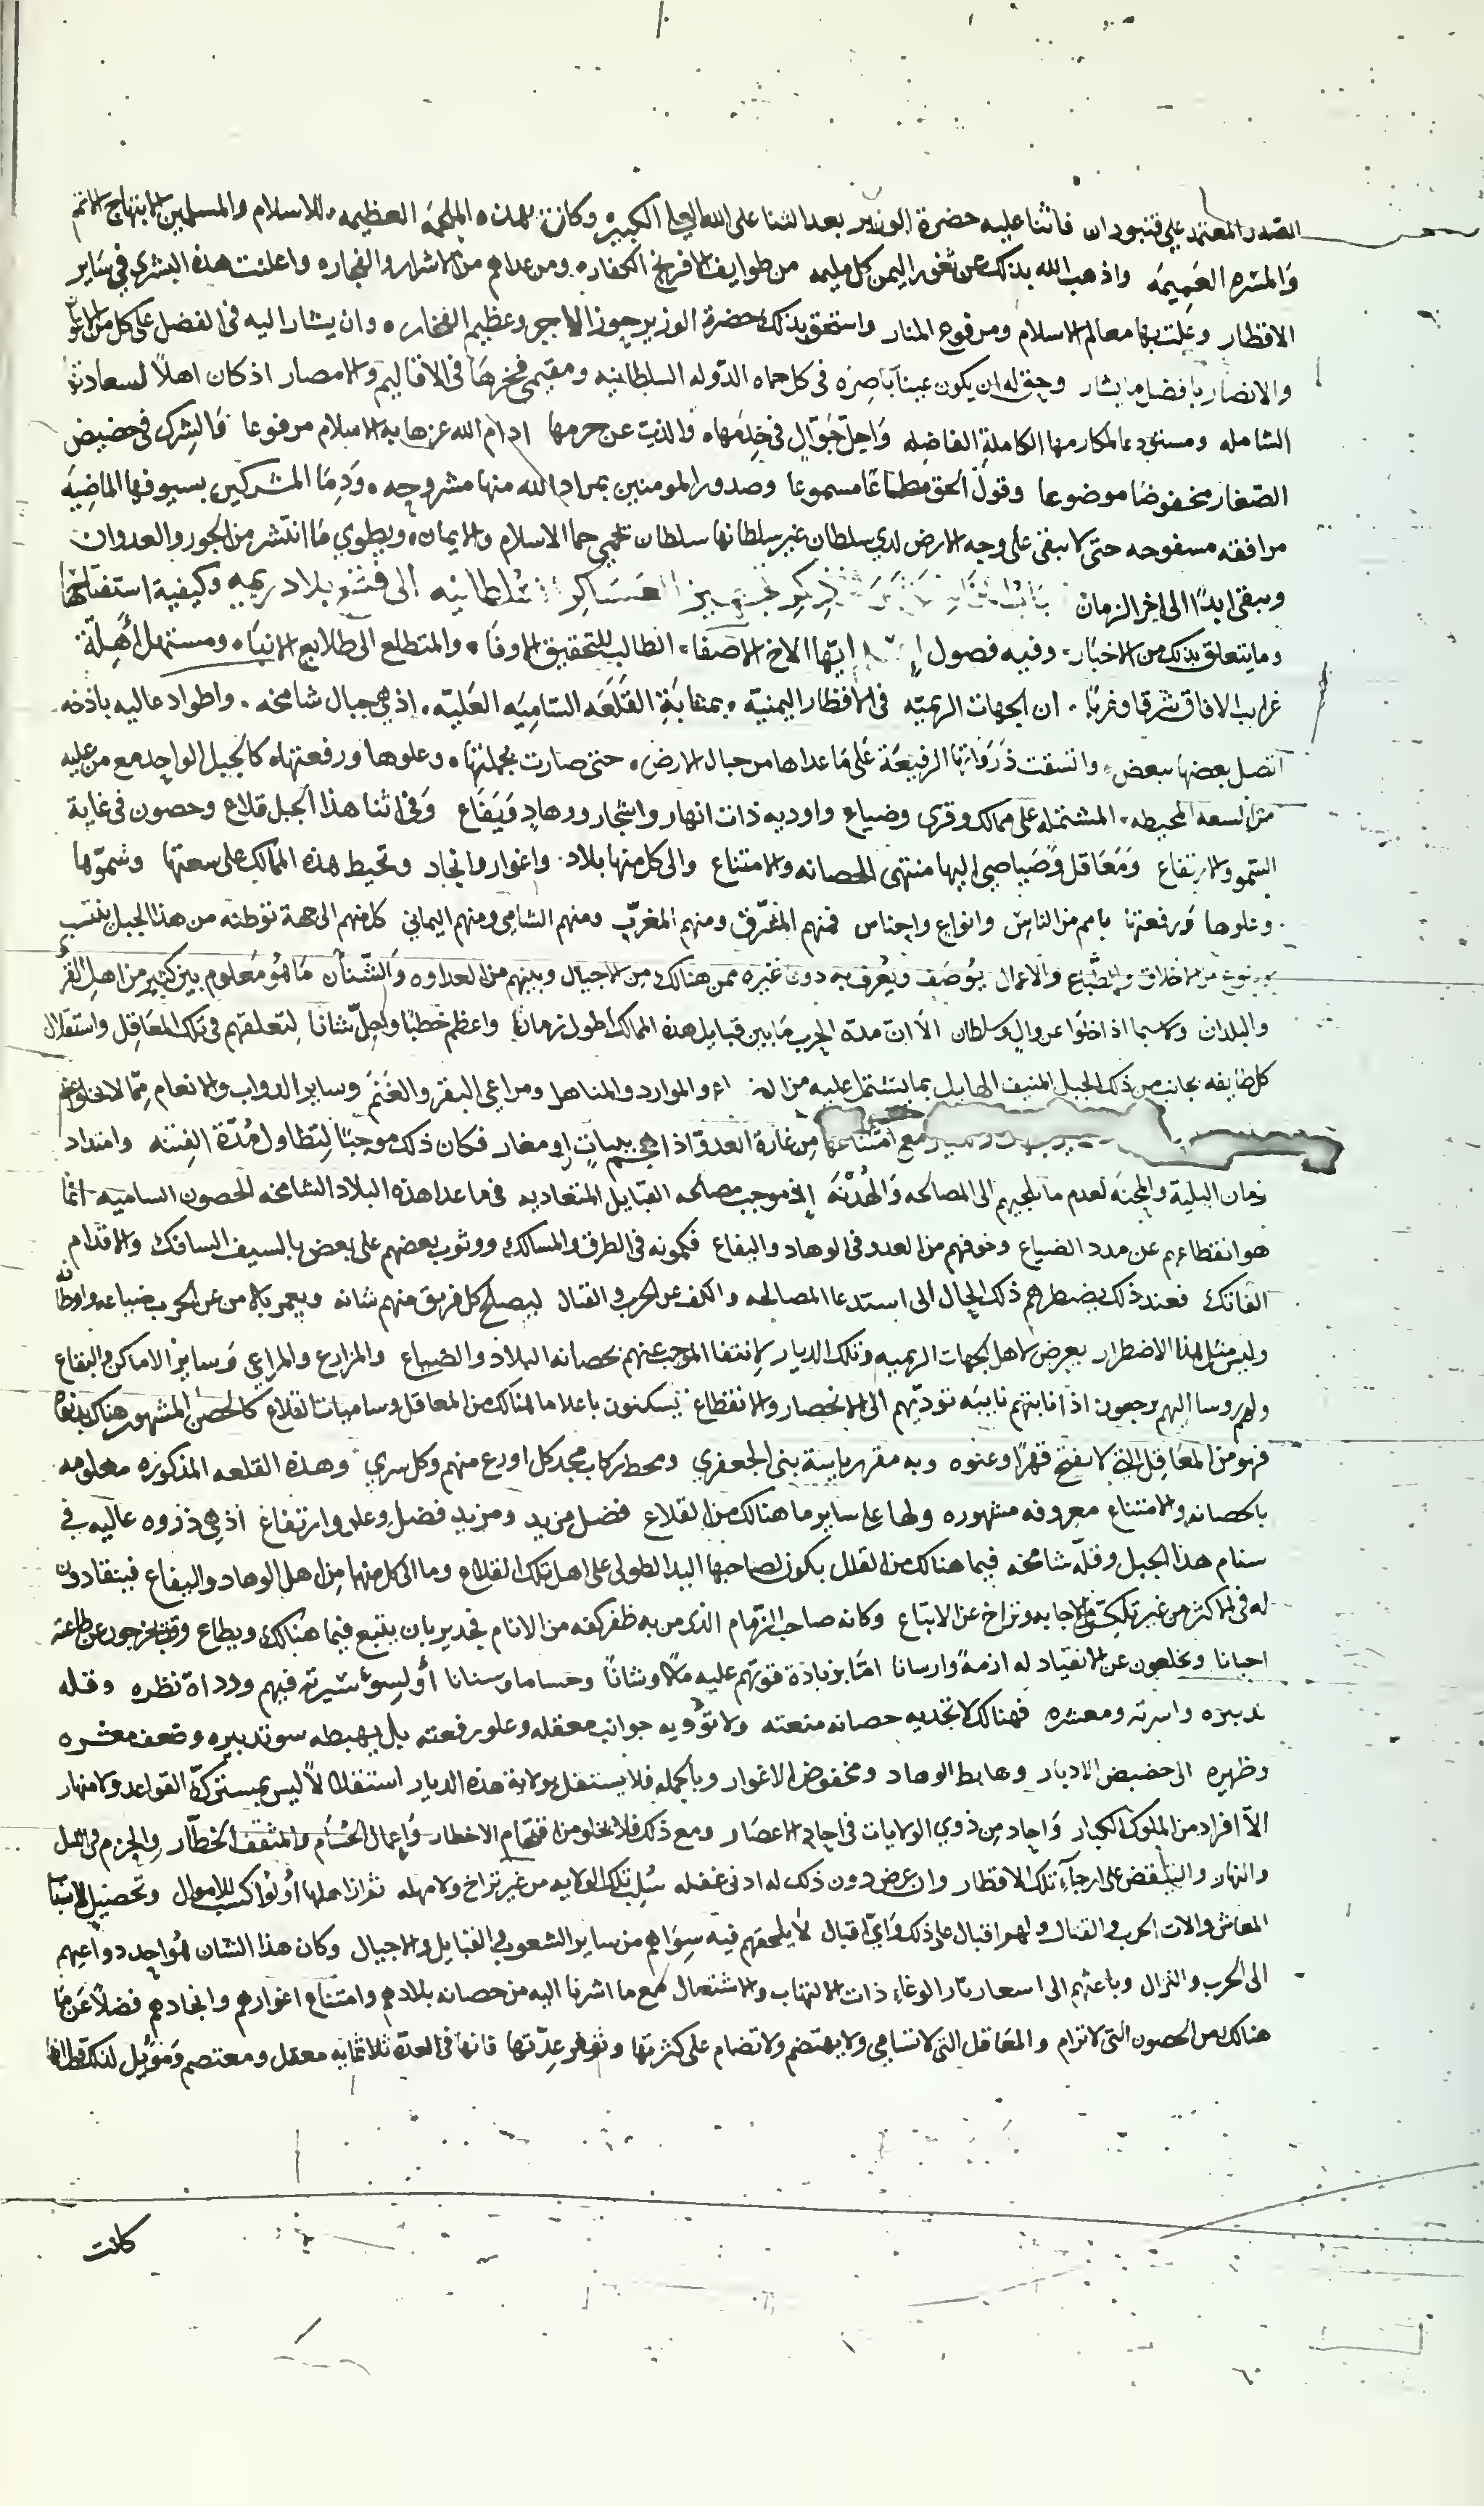 الصدر المعتمد علي قتبودان فاثنا عليه حضرة الوزير بعد الثنا على الله العلي الكبير وكانت بهذه الملحمه العظيمه للاسلام والمسلمين الابتهاج الاتم
والمسره العميمه واذهب الله بذلك عن ثغور اليمن كل مليمه من طوايف الافرنج الكفاره ومن عداهم من الاشرار والفجاره واعلنت هذه البشرى في ساير
الاقطار وعلت بها معالم الاسلام ومرفوع المنار واستحق بذلك حضرة الوزير حوز الاجر وعظيم الفخاره وان يشار اليه في الفضل على كل من
والانصار بافضل ما يشار وحق له ان يكون عينا باصره في كل حماه الدوله السلطانيه ومقتمى فخرها في الاقاليم والامصار اذ كان اهلا لسعادتها
الشامله ومستودعا لمكارمها الكاملة الفاضله واجل جوال في خدمها والذب عن حرمها ادام الله عزها به الاسلام مرفوعا والشرك في حضيض
الصغار مخفوضا موضوعا وقول الحق مطاعا مسموعا وصدور المومنين بمراد الله منها مشروحه ودما المشركين بسيوفها الماضيه
مراقه مسفوحه حتى لا يبقى على وجه الارض لدي سلطان غير سلطانها سلطان تحمي حما الاسلام والايمان ويطوي ما انتشر من الجور والعدوان
ويبقى ابدا الى اخر الزمان ذكر تجهيز العساكر السلطانيه الى فتح بلاد ريمه وكيفية استفتاحها
وما يتعلق بذلك من الاخبار وفيه فصول ايها الاخ الاصفا الطالب للتحقيق الاوفا والمتطلع الى طلايع الانباه ومستهل اهلة
غرايب الافاق شرقا وغربا ان الجهات الريميه في الاقطار اليمنية بمثابة القلعه الساميه العلية اذ هي جبال شامخه واطواد عاليه باذخه
اتصل بعضها ببعض واتسقت ذرواتها الرفيعة على ما عداها من جبال الارض حتى صارت بجملتها وعلوها ورفعتها كالجبل الواحد مع من عليه
من السعه المحيطه المشتمله على ممالك وقرى وضياع واوديه ذات انهار واشجار ووهاد ويفاع وفي اثنا هذا الجبل قلاع وحصون في غاية
السمو والارتفاع ومعاقل وصياصي اليها منتهى الحصانه والامتناع والى كل منها بلاد واغوار وانجاد وتحيط هذه الممالك على سعتها وسموها
وعلوها ورفعتها بامم من الناس وانواع واجناس فمنهم المشرق ومنهم المغرب ومنهم الشامي ومنهم اليماني كل منهم الى جهة توطنه من هذا الجبل ينتسب
نوع من الاخلاق والطباع والاعمال يوصف ويعرف به دون غيره ممن هنالك من الاجيال وبينهم من العداوه والشنأن ما هو معلوم بين كثير من اهل القرى
والبلدان ولا سيما اذا خلوا عن وال وسلطان الا ان مدة الحرب ما بين قبايل هذه الممالك اطول زمانا واعظم خطبا واجل شانا لتعلقهم في تلك المعاقل واستقلال
كل طايفه بجانب من ذلك الجبل المنيف الهايل بما يشتمل عليه من والموارد والمناهل ومراعي البقر والغنم وساير الدواب والانعام مما لا
مع امتناعها من غارة العدو اذا هجم ببيات او مغار فكان ذلك موجبا لتطاول مدة الفتنه وامتداد
زمان البلية والمحنه لعدم ما يلجيهم الى المصالحه والهدنه اذ موجب مصالحه القبايل المتعاديه فيما عدا هذه البلاد الشامخه الحصون الساميه انما
هو انقطاعهم عن مدد الضياع وخوفهم من العدو في الوهاد والبقاع فكمونه في الطرق والمسالك ووثوب بعضهم على بعض بالسيف السافك والاقدام
الفاتك فعند ذلك يضطرهم ذلك الحال الى استدعا المصالحه والكف عن الحرب والقتال ليصلح كل فريق منهم شانه ويعمر بالامن عن الحرب ضياعه واوطانه
وليس مثل هذا الاضطرار يعرض لاهل الجهات الريميه وتلك الديار لانتفا الموجب عنهم بحصانه البلاد والضياع والمزارع والمراعي وساير الاماكن والبقاع
ولهم روسا اليهم يرجعون اذا نابتهم نايبه تؤديهم الى الانحصار والانقطاع يسكنون باعلا ما هنالك من المعاقل وساميات القلاع كالحصن المشهور هناك
فهو من المعاقل التي لا تفتح قهرا وعنوه وبه مقر رياسة بني الجعفري ومحط ركاب مجد كل اورع منهم وكل سري وهذه القلعه المذكوره معلومه
بالحصانه والامتناع معروفه مشهوره ولها على ساير ما هنالك من القلاع فضل مزيد ومزيد فضل وعلو وارتفاع اذ هي ذروه عاليه في
سنام هذا الجبل وقله شامخه فيما هنالك من القلل يكون لصاحبها اليد الطولى على اهل تلك القلاع وما الى كل منها من اهل الوهاد والبقاع فينقادون
له في الاكثر من غير تلكؤ في الاجابه وتراخ عن الاتباع وكانه صاحب الزمام الذي من به ظفر كفه من الانام فجدير بان يتبع فيما هنالك ويطاع وقد يخرجون عن طاعته
احيانا ويخلعون عن الانقياد له ازمة وارسانا اما بزيادة قوتهم عليه ملا وشانا وحساما وسنانا أو لسوء سيرته فيهم ورداة نظره وقله
تدبيره واسرته ومعشره فهنالك لا تجديه حصانه منعته ولا تؤويه جوانب معقله وعلو رفعته بل يهبطه سو تدبيره وضعف معشره
وظهيره الى حضيض الادبار وهابط الوهاد ومخفوض الاغوار وبالجمله فلا يستقل بولاية هذه الديار استقلالا ليس بمسترك القواعد ولا منهار
الا افراد من الملوك الكبار واحاد من ذوي الولايات في احاد الاعصار ومع ذلك فلا يخلو من اقتحام الاخطار واعمال الحسام والمثقف الخطار والحزم في الليل
والنهار والتيقض على ارجآء تلك الاقطار وان عرض دون ذلك له ادنى غفله سلبت تلك الولايه من غير تراخ ولا مهله ثم ان اهلها أولوا كسب للاموال وتحصيل لاسباب
المعاش والات الحرب والقتال ولهم اقبال على ذلك واي اقبال لا يلحقهم فيه سواهم من ساير الشعوب والقبايل والاجيال وكان هذا الشان هو احد دواعيهم
الى الحرب والنزال وباعثهم الى اسعار نار الوغاء ذات الالتهاب والاشتعال مع ما اشرنا اليه من حصانه بلادهم وامتناع اغوارهم وانجادهم فضلا عن ما
هنالك من الحصون التي لا ترام والمعاقل التي لا تسامى ولا يهتضم ولا تضام على كثرتها وتوفر عدتها فانها في العدة ثلاثمايه معقل ومعتصم وموئل لتلك
كانت